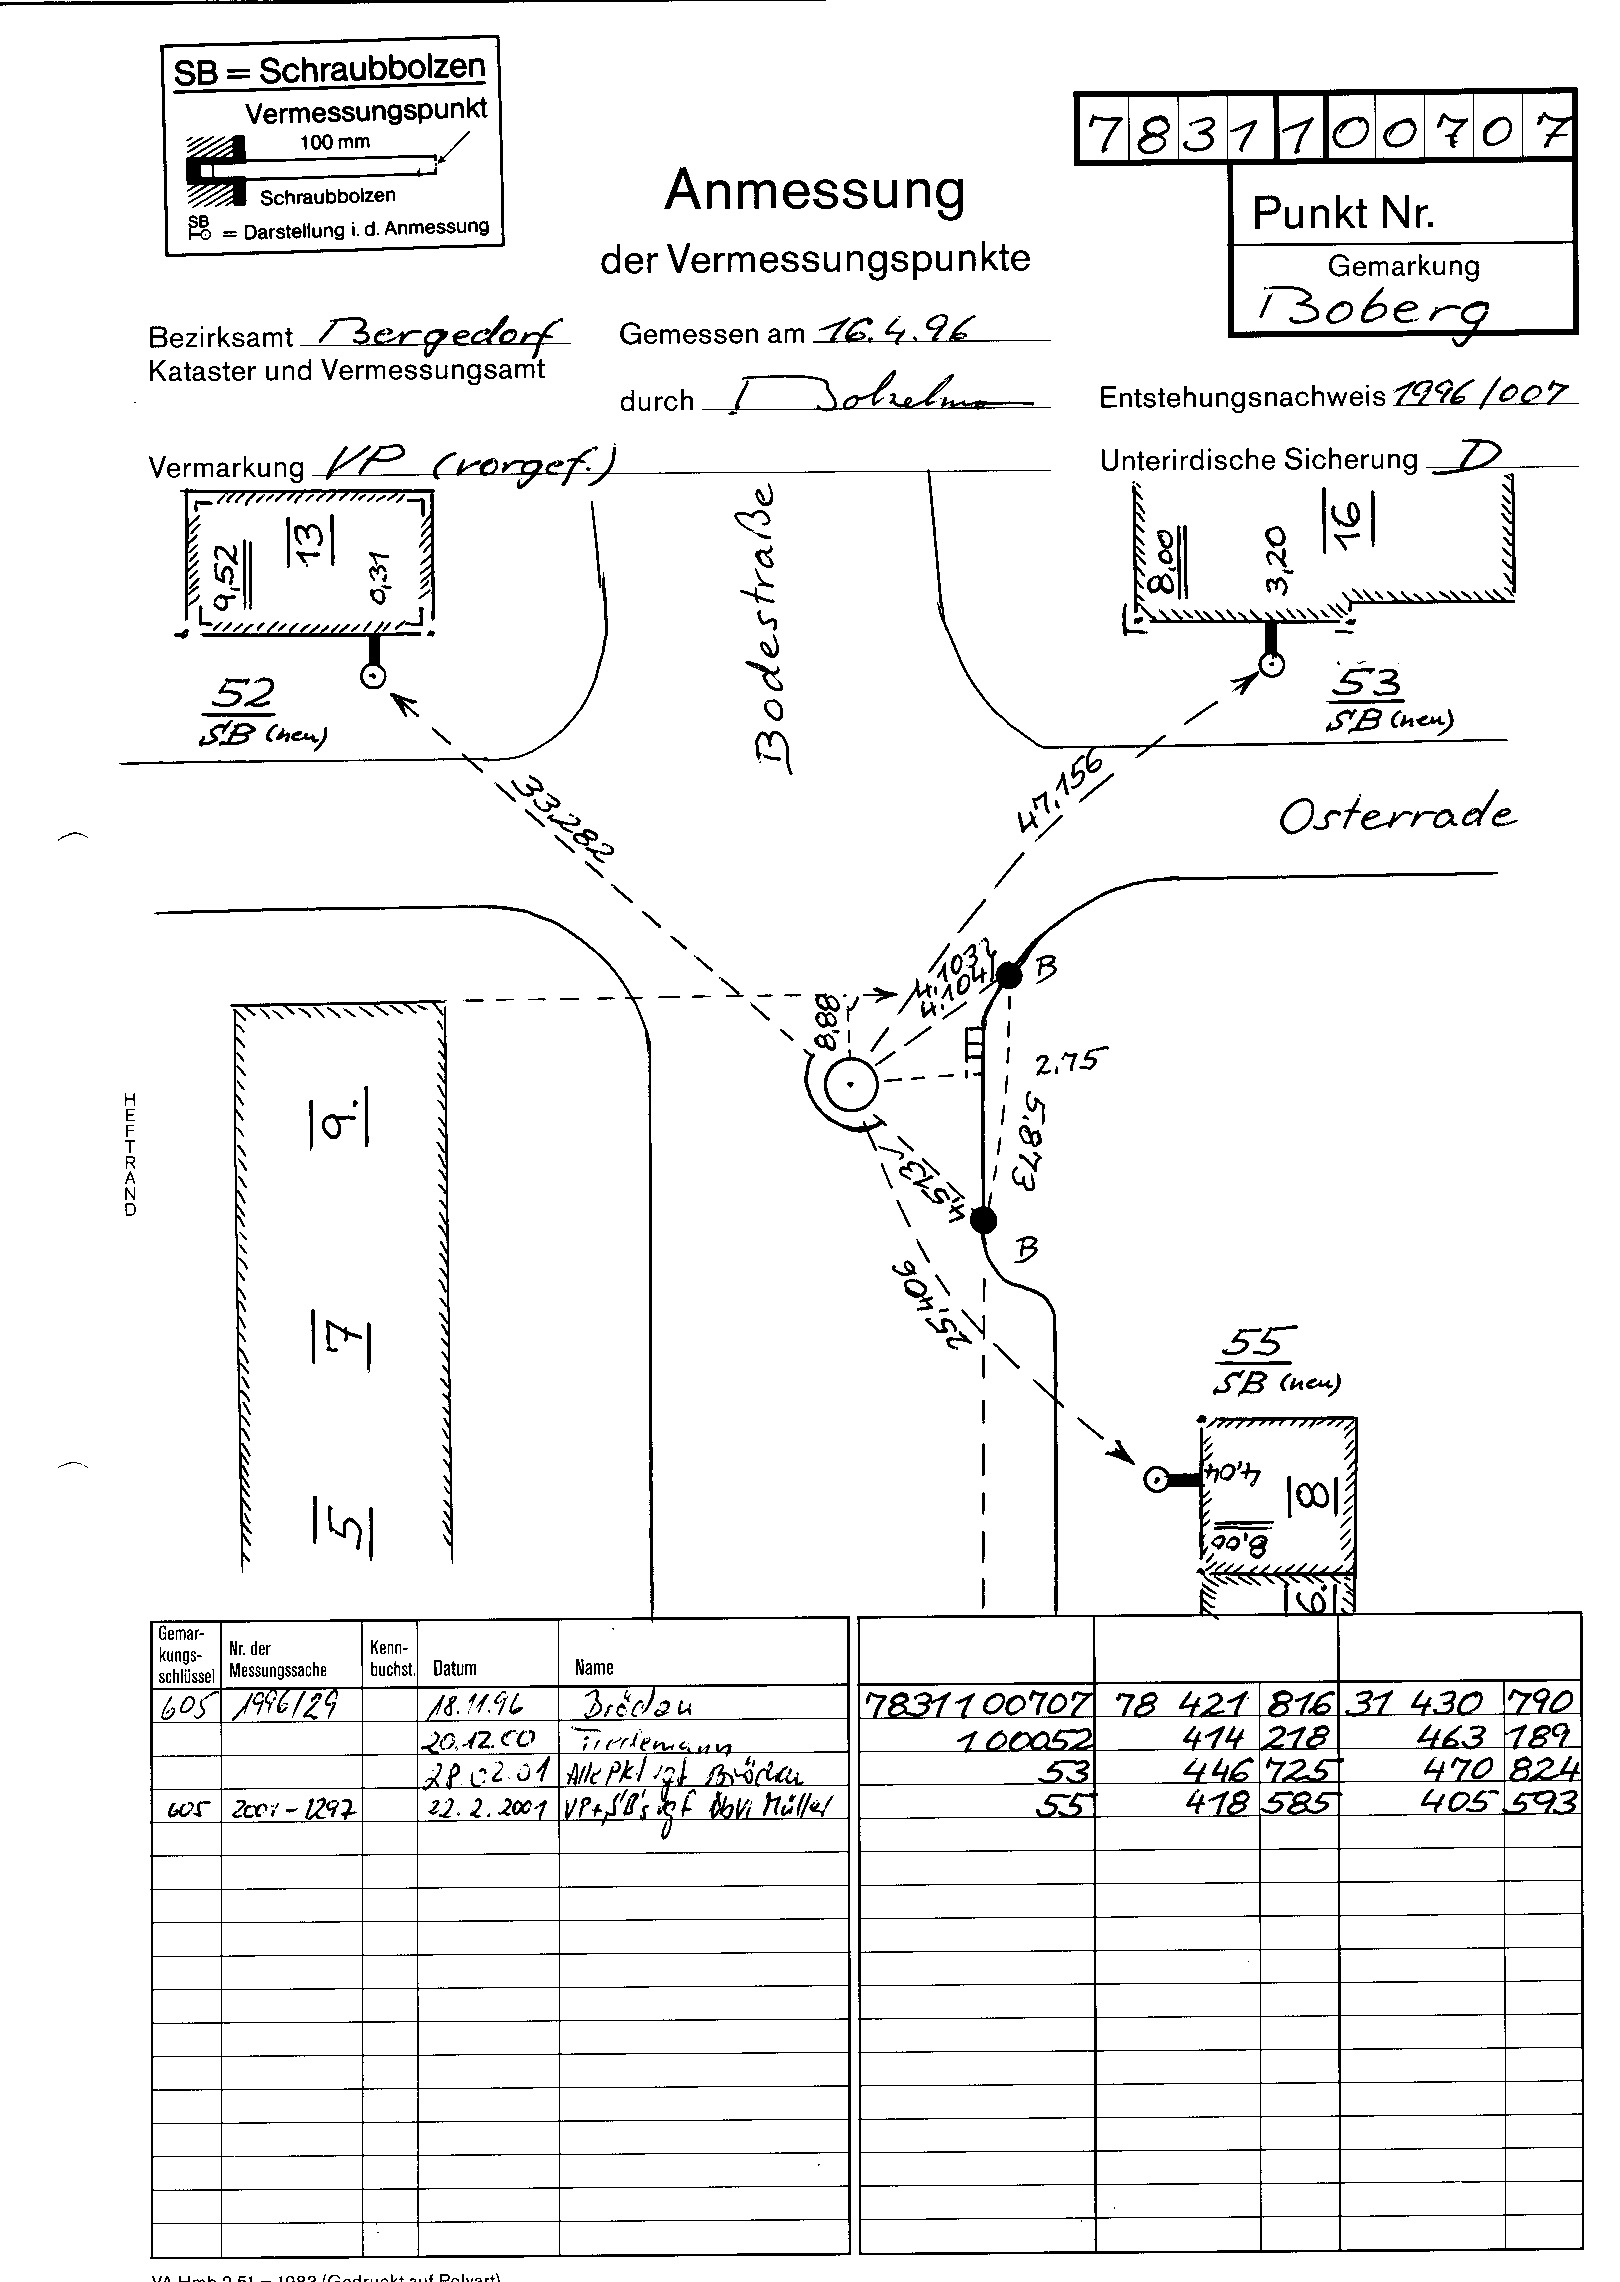 SB = Schraubbolzen
Vermessungspunkt
100 mm
Schraubbolzen
SB = Darstellung i. d. Anmessung
Anmessung
der Vermessungspunkte
7831100707
Punkt Nr.
Gemarkung
Boberg
Bezirksamt Bergedorf
Kataster und Vermessungsamt
Gemessen am 16.4.96
durch
Entstehungsnachweis 1996/007
Vermarkung VP (vorgef.)
Unterirdische Sicherung D
9,52
13
0,31
52
SB (neu)
Bodestraße
8,00
3,20
16
53
SB (neu)
33,282
47,156
Osterrade
4,103
4,104
B
8,88
2,75
5,873
4,513
B
25,406
9.
7
5
HEFTRAND
55
SB (neu)
4,04
8
8,00
6.
Gemar-
kungs-
schlüssel
Nr. der
Messungssache
Kenn-
buchst.
Datum
Name
605 1996/29 18.11.96 Brödau 7831100707 78 421 816 31 430 790
20.12.00 Tiedemann 100052 414 218 463 189
28.02.01 Alle Pkt igf Brödau 53 446 725 470 824
605 2001-1297 22.2.2001 VP+SB's igf ÖbVI Müller 55 418 585 405 593